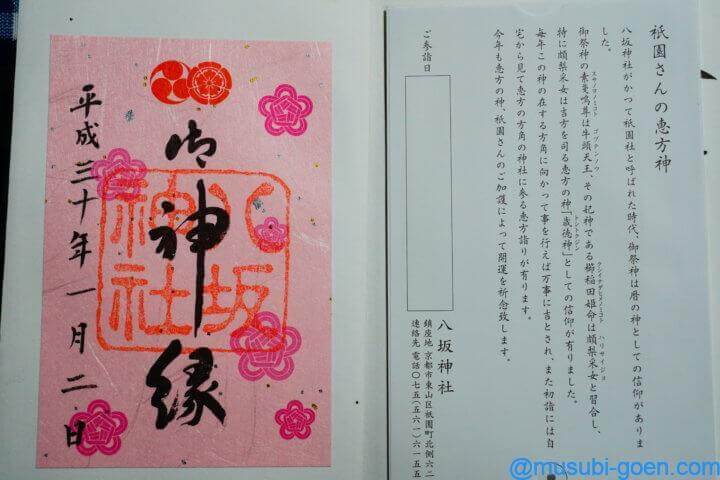 祇園さんの恵方神
八坂神社がかつて祇園社と呼ばれた時代、御祭神は暦の神としての信仰がありま
した。
スサノヲノミコト ゴヅテンノウ
御祭神の素戔嗚尊は牛頭天王、その妃神である櫛稲田姫命は頗梨采女と習合し、
クシイナダヒメノミコト ハリサイジョ
特に頗梨采女は吉方を司る恵方の神「歳徳神」としての信仰が有りました。
トシトクジン
毎年この神の在する方角に向かって事を行えば万事に吉とされ、また初詣には自
宅から見て恵方の方角の神社に参る恵方詣りが有ります。
今年も恵方の神、祇園さんのご加護によって開運を祈念致します。
ご参詣日
八坂神社
鎮座地 京都市東山区祇園町北側六二
連絡先 電話〇七五(五六一)六一五五
御神縁
八坂
神社
平成三十年一月二日
@musubi-goen.com